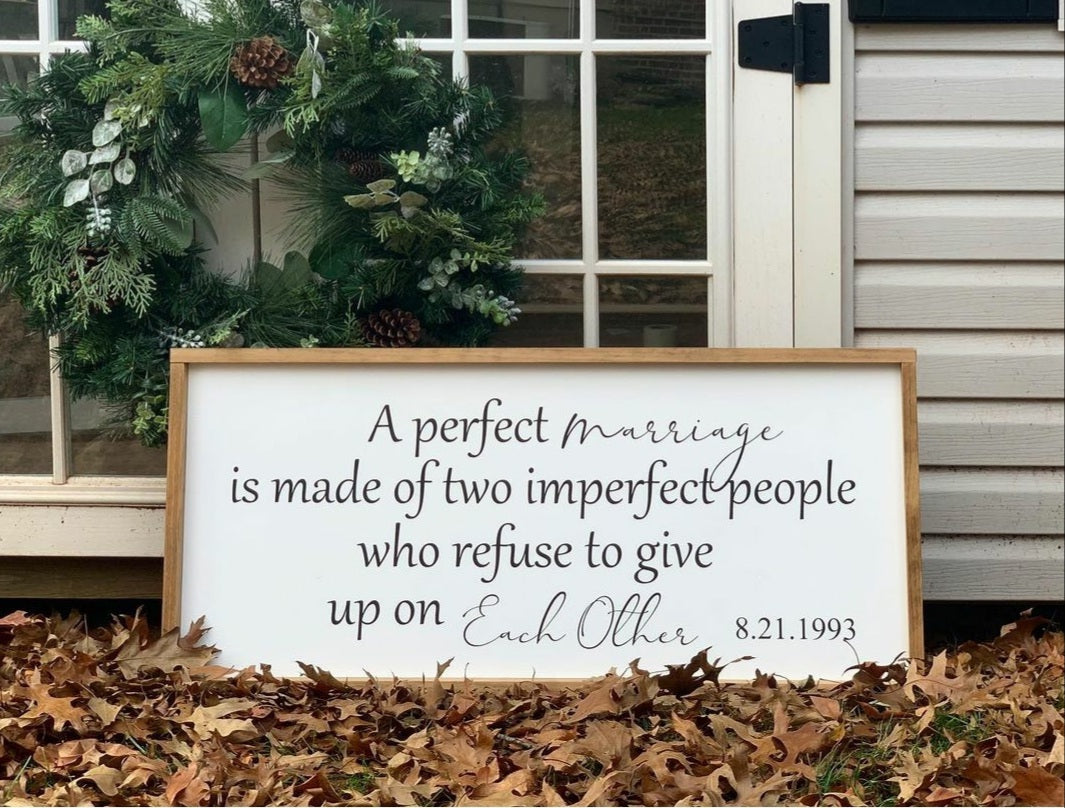 A perfect Marriage
is made of two imperfect people
who refuse to give
up on Each Other 8.21.1993